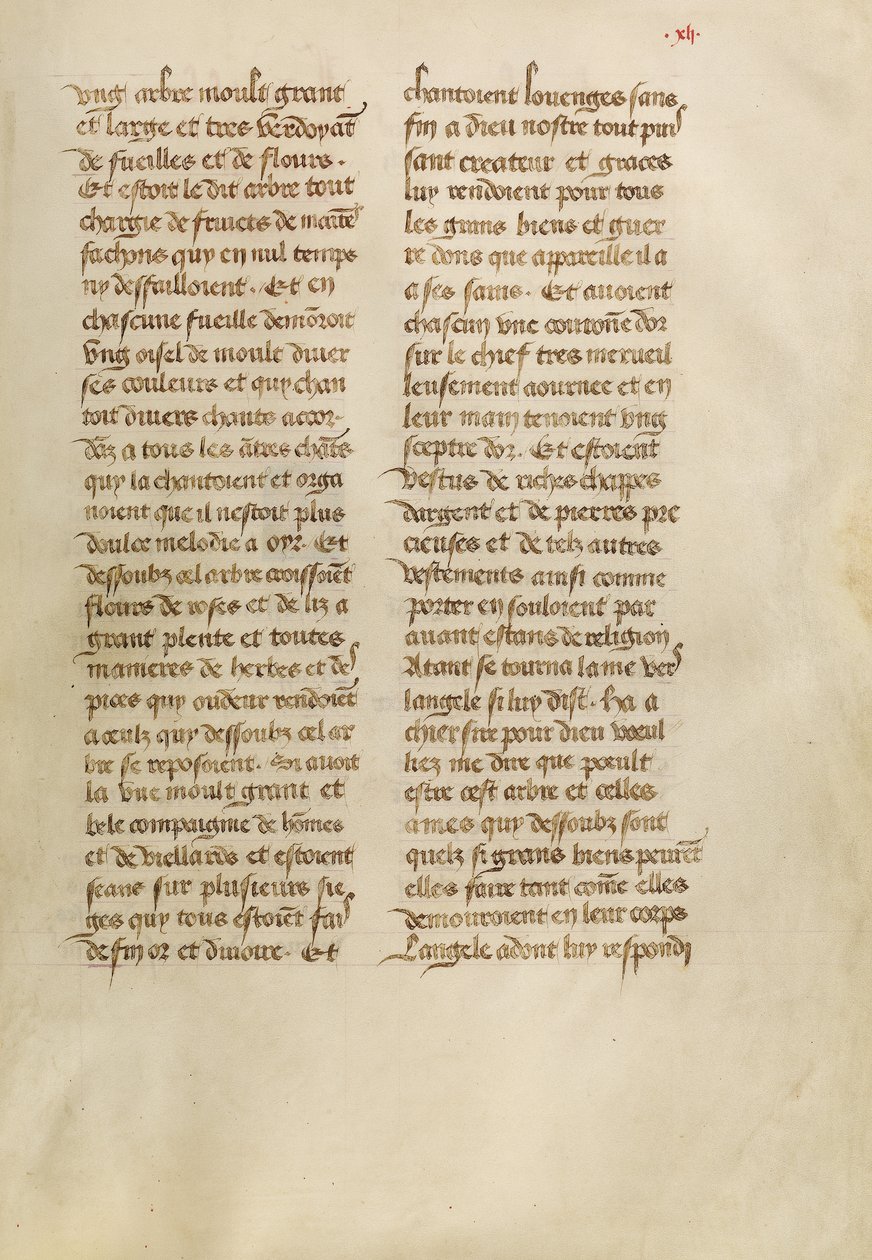 ·xli·
vng arbre moult grant
et large et tres verdoyāt
de fueilles et de flours.
Et estoit le dit arbre tout
chargie de fruicts de maītes
fachons quy en nul temps
ny deffailloient. Et en
chascune fueille demōroit
vng oisel de moult diuer
ses couleurs et quy chan
toit diuers chants accor-
dāz a tous les āītres chāts
quy la chantoient et orga
noient que il nestoit plus
doulce melodie a oyr. Et
dessoubz cel arbre croissoiēt
flours de roses et de liz a
grant plente et toutes
manieres de herbes et des
pices quy oudeur rendoiēt
a ceulz quy dessoubz cel ar
bre se reposoient. Si auoit
la vne moult grant et
bele compaignie de hōmes
et de viellards et estoient
seans sur plusieurs sie
ges quy tous estoiēt fais
de fin or et diuoire. Et
chantoient louenges sans
fin a dieu nostre tout puis
sant createur et graces
luy rendoient pour tous
les grans biens et guer
re dons que appareille il a
a ses sains. Et auoient
chascun vne couronē dor
sur le chief tres merueil
leusement aournee et en
leur main tenoient vng
sceptre dor. Et estoient
vestus de riches chappes
dargent et de pierres pre
cieuses et de telz autres
vestements ainsi comme
porter en souloient par
auant estans de religion
Atant se tourna lame vers
langele si luy dist. Ha a
chier sire pour dieu voeul
liez me dire que poeult
estre cest arbre et celles
ames quy dessoubz sont
quelz si grans biens peurēt
elles faire tant comē elles
demouroient en leur corps
Langele adont luy respondi